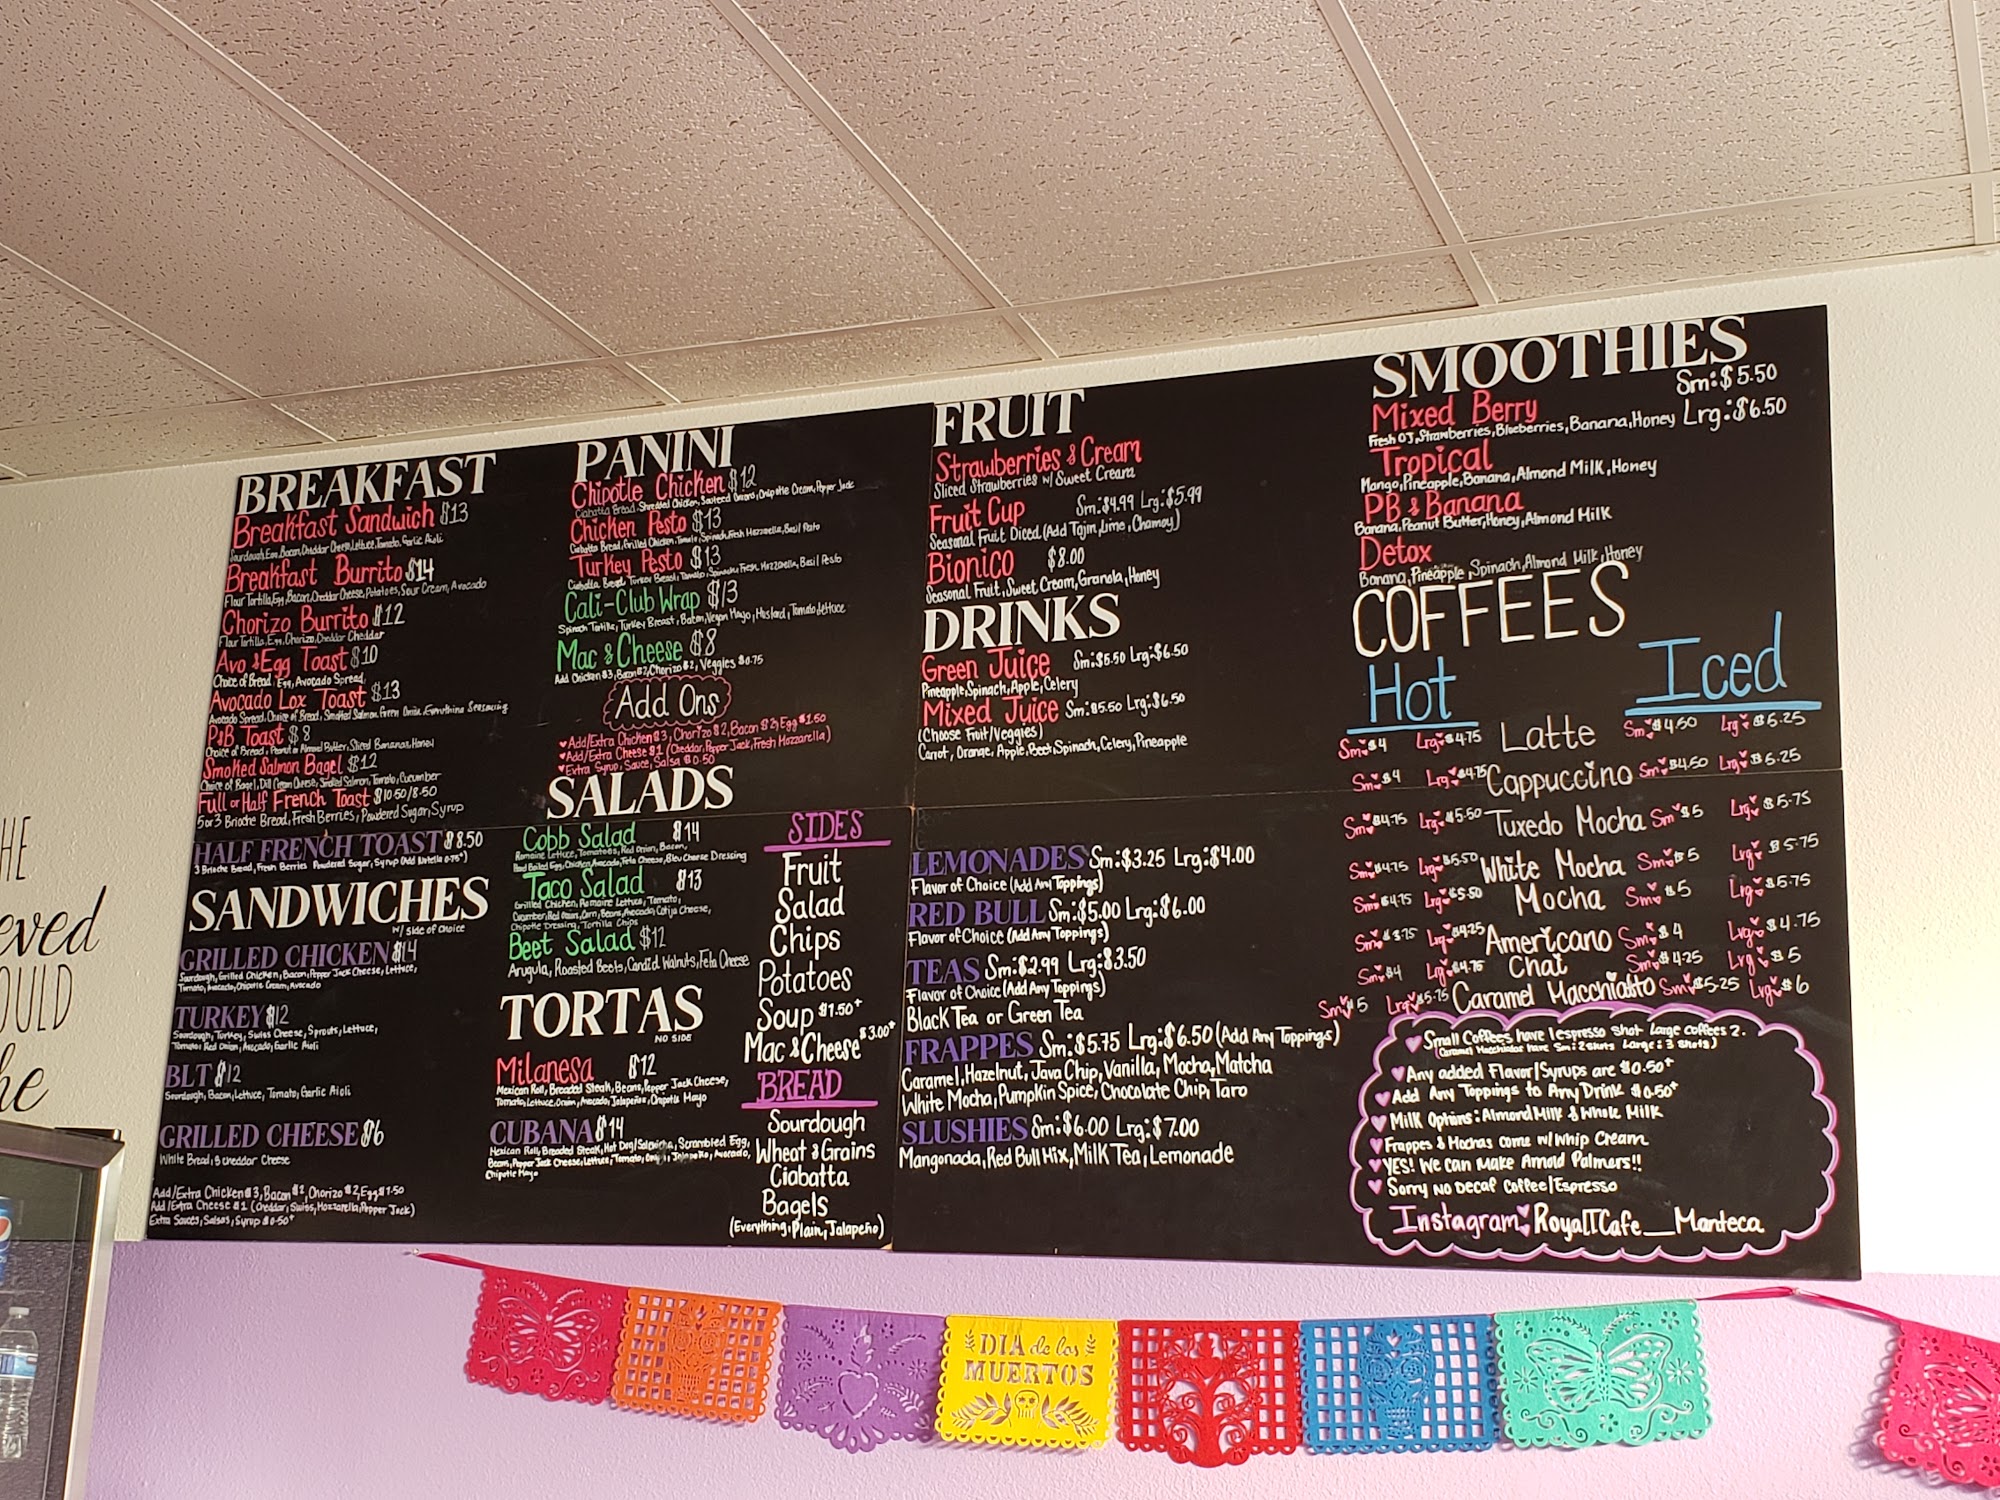 BREAKFAST
Breakfast Sandwich $13
Sourdough, Egg, Bacon, Cheddar Cheese, Lettuce, Tomato, Garlic Aioli
Breakfast Burrito $14
Flour Tortilla, Egg, Bacon, Cheddar Cheese, Potatoes, Sour Cream, Avocado
Chorizo Burrito $12
Flour Tortilla, Egg, Chorizo, Cheddar Cheddar
Avo & Egg Toast $10
Choice of Bread, Egg, Avocado Spread
Avocado Lox Toast $13
Avocado Spread, Choice of Bread, Smoked Salmon, Green Onion, Everything Seasoning
P&B Toast $8
Choice of Bread, Peanut or Almond Butter, Sliced Bananas, Honey
Smoked Salmon Bagel $12
Choice of Bagel, Dill Cream Cheese, Smoked Salmon, Tomato, Cucumber
Full or Half French Toast $10.50/8.50
5 or 3 Brioche Bread, Fresh Berries, Powdered Sugar, Syrup
HALF FRENCH TOAST $8.50
3 Brioche Bread, Fresh Berries Powdered Sugar, Syrup (Add Nutella 0.75+)
SANDWICHES
W/ Side of Choice
GRILLED CHICKEN $14
Sourdough, Grilled Chicken, Bacon, Pepper Jack Cheese, Lettuce,
Tomato, Avocado, Chipotle Cream, Avocado
TURKEY $12
Sourdough, Turkey, Swiss Cheese, Sprouts, Lettuce,
Tomato, Red Onion, Avocado, Garlic Aioli
BLT $12
Sourdough, Bacon, Lettuce, Tomato, Garlic Aioli
GRILLED CHEESE $6
White Bread, 3 cheddar Cheese
Add/Extra Chicken $3, Bacon $2, Chorizo $2, Egg $1.50
Add/Extra Cheese $1 (Cheddar, Swiss, Mozzarella, Pepper Jack)
Extra Sauces, Salsas, Syrup $0.50+
PANINI
Chipotle Chicken $12
Ciabatta Bread, Shredded Chicken, Sauteed Onions, Chipotle Cream, Pepper Jack
Chicken Pesto $13
Ciabatta Bread, Grilled Chicken, Tomato, Spinach, Fresh Mozzarella, Basil Pesto
Turkey Pesto $13
Ciabatta Bread, Turkey Breast, Tomato, Spinach, Fresh Mozzarella, Basil Pesto
Cali-Club Wrap $13
Spinach Tortilla, Turkey Breast, Bacon, Vegan Mayo, Mustard, Tomato, Lettuce
Mac & Cheese $8
Add Chicken $3, Bacon $2, Chorizo $2, Veggies $0.75
Add Ons
Add/Extra Chicken $3, Chorizo $2, Bacon $2, Egg $1.50
Add/Extra Cheese $1 (Cheddar, Pepper Jack, Fresh Mozzarella)
Extra Syrup, Sauce, Salsa $0.50
SALADS
Cobb Salad $14
Romaine Lettuce, Tomatoes, Red Onion, Bacon,
Hard Boiled Egg, Chicken, Avocado, Feta Cheese, Bleu Cheese Dressing
Taco Salad $13
Grilled Chicken, Romaine Lettuce, Tomato,
Cucumber, Red Onion, Corn, Beans, Avocado, Cotija Cheese,
Chipotle Dressing, Tortilla Chips
Beet Salad $12
Arugula, Roasted Beets, Candid Walnuts, Feta Cheese
TORTAS
NO SIDE
Milanesa $12
Mexican Roll, Breaded Steak, Beans, Pepper Jack Cheese,
Tomato, Lettuce, Onion, Avocado, Jalapeños, Chipotle Mayo
CUBANA $14
Mexican Roll, Breaded Steak, Hot Dog/Salchicha, Scrambled Egg,
Beans, Pepper Jack Cheese, Lettuce, Tomato, Onion, Jalapeño, Avocado,
Chipotle Mayo
SIDES
Fruit
Salad
Chips
Potatoes
Soup $1.50+
Mac & Cheese $3.00+
BREAD
Sourdough
Wheat & Grains
Ciabatta
Bagels
(Everything, Plain, Jalapeño)
FRUIT
Strawberries & Cream
Sliced Strawberries w/ Sweet Cream
Fruit Cup Sm:$4.99 Lrg:$5.99
Seasonal Fruit Diced (Add Tajin, Lime, Chamoy)
Bionico $8.00
Seasonal Fruit, Sweet Cream, Granola, Honey
DRINKS
Green Juice Sm:$5.50 Lrg:$6.50
Pineapple, Spinach, Apple, Celery
Mixed Juice Sm:$5.50 Lrg:$6.50
(Choose Fruit/Veggies)
Carrot, Orange, Apple, Beet, Spinach, Celery, Pineapple
LEMONADES Sm:$3.25 Lrg:$4.00
Flavor of Choice (Add Any Toppings)
RED BULL Sm:$5.00 Lrg:$6.00
Flavor of Choice (Add Any Toppings)
TEAS Sm:$2.99 Lrg:$3.50
Flavor of Choice (Add Any Toppings)
Black Tea or Green Tea
FRAPPES Sm:$5.75 Lrg:$6.50 (Add Any Toppings)
Caramel, Hazelnut, Java Chip, Vanilla, Mocha, Matcha
White Mocha, Pumpkin Spice, Chocolate Chip, Taro
SLUSHIES Sm:$6.00 Lrg:$7.00
Mangonada, Red Bull Mix, Milk Tea, Lemonade
SMOOTHIES
Sm:$5.50
Mixed Berry Lrg:$6.50
Fresh OJ, Strawberries, Blueberries, Banana, Honey
Tropical
Mango, Pineapple, Banana, Almond Milk, Honey
PB & Banana
Banana, Peanut Butter, Honey, Almond Milk
Detox
Banana, Pineapple, Spinach, Almond Milk, Honey
COFFEES
Hot Iced
Sm $4 Lrg $4.75 Latte Sm $4.50 Lrg $5.25
Sm $4 Lrg $4.75 Cappuccino Sm $4.50 Lrg $5.25
Sm $4.75 Lrg $5.50 Tuxedo Mocha Sm $5 Lrg $5.75
Sm $4.75 Lrg $5.50 White Mocha Sm $5 Lrg $5.75
Sm $4.75 Lrg $5.50 Mocha Sm $5 Lrg $5.75
Sm $3.75 Lrg $4.25 Americano Sm $4 Lrg $4.75
Sm $4 Lrg $4.75 Chai Sm $4.25 Lrg $5
Sm $5 Lrg $5.75 Caramel Macchiatto Sm $5.25 Lrg $6
Small Coffees have 1 espresso shot Large coffees 2.
(Caramel Macchiator have Sm: 2 shots Large: 3 shots)
Any added Flavor/Syrups are $0.50+
Add Any Toppings to Any Drink $0.50+
Milk Options: Almond Milk & Whole Milk
Frappes & Mochas come w/ Whip Cream
YES! We can make Arnold Palmers!!
Sorry No Decaf Coffee/Espresso
Instagram: RoyalTCafe__Manteca
HE
eved
OULD
he
DIA de los
MUERTOS